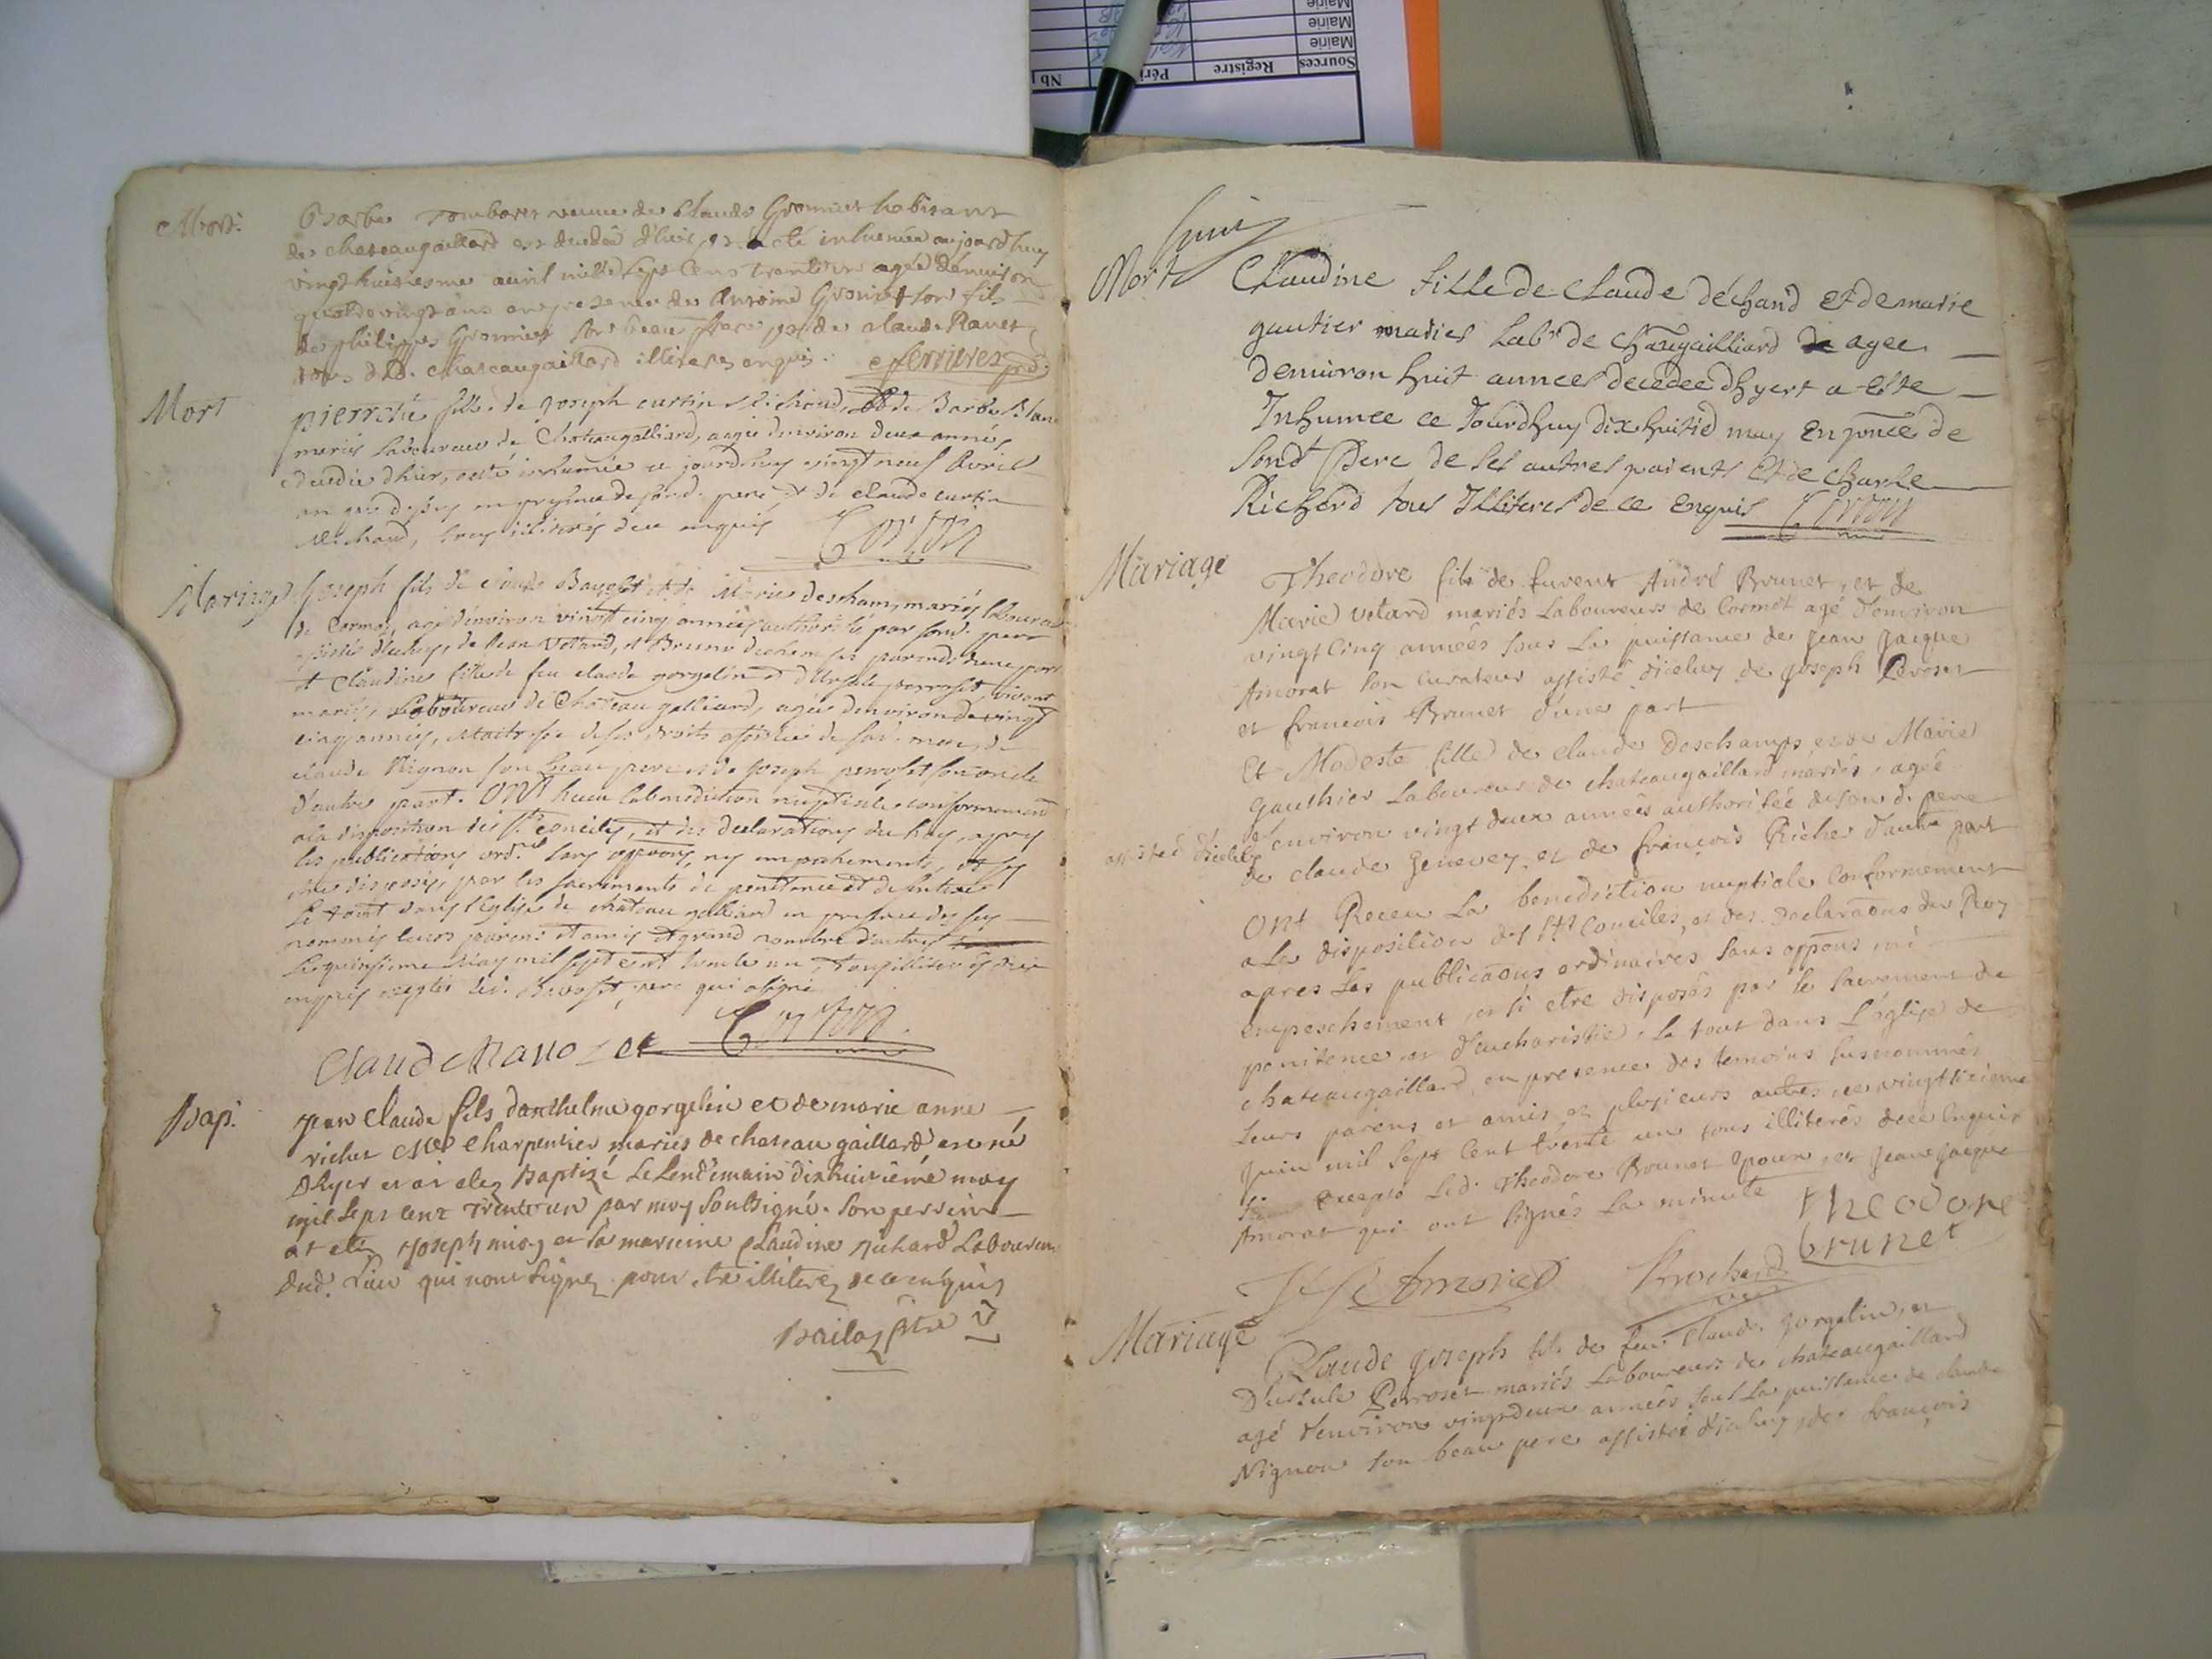 Mort.
Barbe Tombaret veuve de Claude Gromier habitant
de chateaugaillard est decedée d'hier, et a eté inhumée aujourdhuy
vingt huitiesme avril mille sept Cens trente un agée d'environ
quatrevingt ans en presence de Antoine Gromier son fils
de philippes Gromier son beau frere et de claude Ravet
tous dud. chateaugaillard illiteres enquis. ferrieres
Mort
pierrette fille de Joseph curtin Michaud, et de Barbe Blanc
mariés Laboureurs de Chateaugalliard, agée denviron deux années
decedée dhier, a eté inhumée ce jourdhuy vingt neuf Avril
en presence de sond. pere et de claude curtin
Michaud, tous illiterés dece enquis
Mariage
Joseph fils de Marie descham, mariés laboureurs
de Cormoz, agé d'environ vingt cinq années authorisé par sond. pere
assisté dicheluy, de Jean Votard, et Bruno ses parends dune part
et Claudine fille de feu claude gorgelin et d'Ursule perroset vivant
mariés, Laboureurs de Chateau galliard, agée denviron de vingt
cinq années, Maitresse de ses droits assistée de sad. mere, de
claude Nignon son beau pere et de Joseph peroset son oncle
d'autre part. ONT Receu la benediction nuptiale conformement
a la disposition des Sts conciles, et des declarations du Roy, apres
les publications ordres sans oppons, ny empechements, et sy
etre disposés, par les sacrements de penitence et
Le tout dans l'Eglise de chateau galliard en presence des sus
nommés leurs parens et amis et grand nombre d'autres
Le quinsieme May mil sept cent trente un, Tous illiterés dece
enquis excepté led. pere qui a signé
Claude et
Bap.
Jean Claude fils d'anthelme gorgelin et de marie anne
richer Me Charpentier mariés de chateau gaillard est né
Dhyer et a eté Baptizé Le Lendemain dixhuitiéme may
mil sept cent Trente un par moy soussigné. Son perrein
at eté Joseph et la marreine Claudine Richard Laboureurs
dud. Lieu qui nont signez pour etre illiterez de ce enquis
Bailat ptre
Juin
Mort
Claudine fille de Claude déchand et de marie
gautier mariés Labrs de Chaugailliard agee
d'environ huit annees decedee dhyert a este
Inhumee ce Jourdhuy dix huitie may En pnce de
sondt pere de ses autres parents Et de Charle
Richard tous Illiteres de ce Enquis
Mariage
Theodore fils de furent André Brunet, et de
Marie votard mariés Laboureurs de Cormot agé d'environ
vingt Cinq années sous La puissance de Jean Jacque
Amorat son curateur assisté dicelui de Joseph Peroset
et francois Brunet d'une part
Et Modeste fille de claude Deschamps et de Marie
Gauthier Laboureurs de chateaugaillard mariés, agée
d'environ vingt deux années authorisée de son d. pere
assistée d'icelui de claude Genevey et de françois Richer d'autre part
Ont Receu La benediction nuptiale Conformement
a la disposition des Sts Conciles, et des Declaraons du Roy
apres Les publicaons ordinaires sans oppons, ni
empeschement, et si etre disposés par le Sacrement de
penitence et d'eucharistie, Le tout dans L'église de
chateaugaillard, en presence des temoins susnommés,
Leurs parens et amis et plusieurs autres, ce
juin mil sept Cent trente un tous illiterés dece Enquis
excepté Led. Theodore Brunet Epoux, et Jean Jacque
Amorat qui ont signés La minute
Theodore
brunet
JJ Amorat
Brochard
Mariage
Claude Joseph fils de feu Claude Gorgelin, et
D'ursule Perroset mariés Laboureurs de chateaugaillard
agé d'environ vingt deux années sous La puissance de claude
Nignon son beau pere assisté d'icelui, de françois